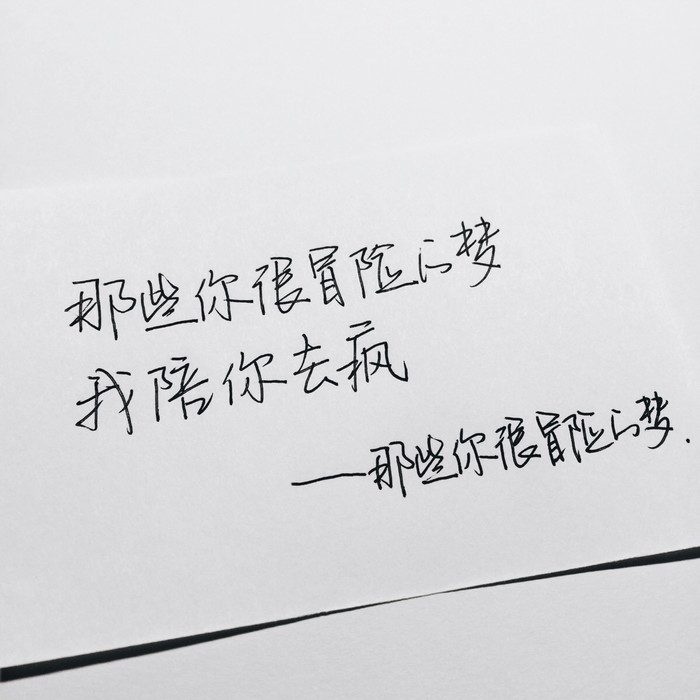 那些你很冒险的梦
我陪你去疯
——那些你很冒险的梦.